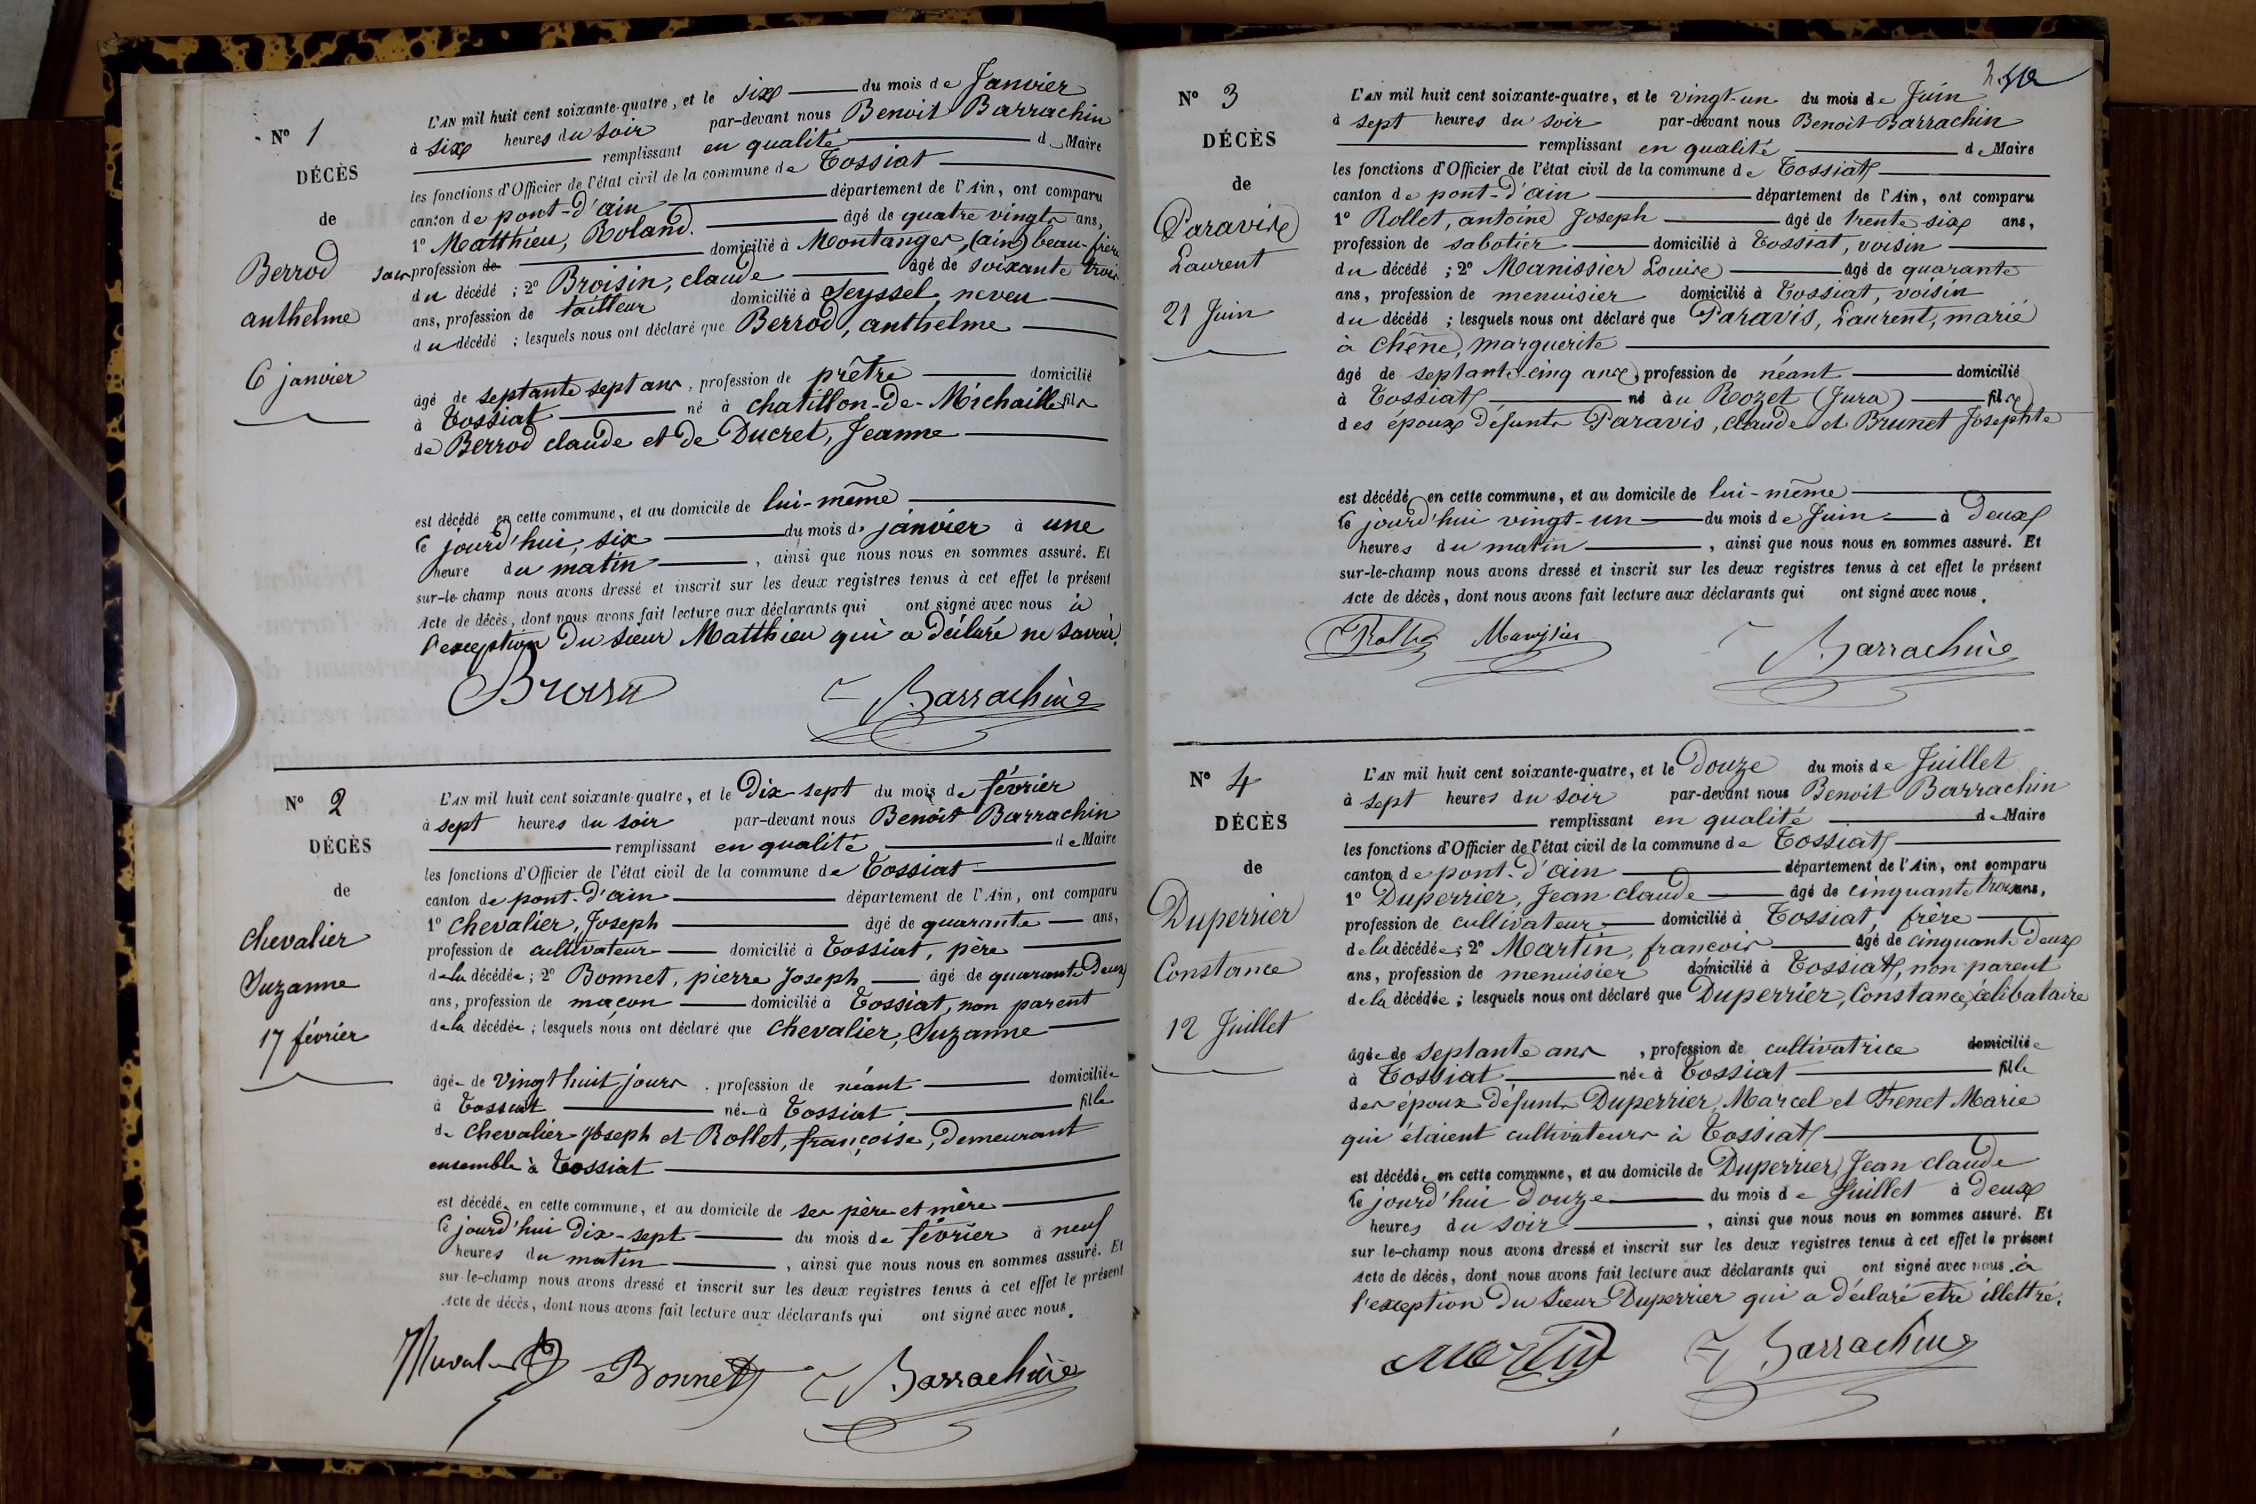 N° 1
DÉCÈS
de
Berrod
anthelme
6 janvier
L'AN mil huit cent soixante-quatre, et le six du mois de Janvier
à six heures du soir par-devant nous Benoit Barrachin
remplissant en qualité de Maire
les fonctions d'Officier de l'état civil de la commune de Tossiat
canton de pont-d'ain département de l'Ain, ont comparu
1° Matthieu, Roland. âgé de quatre vingts ans,
sans profession de domicilié à Montanges, (ain) beau-frère
du décédé ; 2° Broisin, claude âgé de soixante trois
ans, profession de tailleur domicilié à Seyssel, neveu
du décédé ; lesquels nous ont déclaré que Berrod, anthelme
âgé de septante sept ans, profession de prêtre domicilié
à Tossiat né à chatillon-de-Michaille fils
de Berrod claude et de Ducret, Jeanne
est décédé en cette commune, et au domicile de lui-même
Ce jourd'hui, six du mois de janvier à une
heure du matin, ainsi que nous nous en sommes assuré. Et
sur-le-champ nous avons dressé et inscrit sur les deux registres tenus à cet effet le présent
Acte de décès, dont nous avons fait lecture aux déclarants qui ont signé avec nous à
l'exception du sieur Matthieu qui a déclaré ne savoir.
Barrachin
N° 2
DÉCÈS
de
chevalier
Suzanne
17 février
L'AN mil huit cent soixante-quatre, et le Dix-sept du mois de février
à sept heures du soir par-devant nous Benoit Barrachin
remplissant en qualité de Maire
les fonctions d'Officier de l'état civil de la commune de Tossiat
canton de pont-d'ain département de l'Ain, ont comparu
1° chevalier, Joseph âgé de quarante ans,
profession de cultivateur domicilié à Tossiat, père
de la décédée ; 2° Bonnet, pierre Joseph âgé de quarante deux
ans, profession de maçon domicilié à Tossiat, non parent
de la décédée ; lesquels nous ont déclaré que chevalier, Suzanne
âgée de vingt huit jours, profession de néant domiciliée
à Tossiat née à Tossiat, fille
de chevalier Joseph et Rollet, françoise, demeurant
ensemble à Tossiat
est décédée en cette commune, et au domicile de ses père et mère
Ce jourd'hui Dix-sept du mois de février à neuf
heures du matin, ainsi que nous nous en sommes assuré. Et
sur-le-champ nous avons dressé et inscrit sur les deux registres tenus à cet effet le présent
Acte de décès, dont nous avons fait lecture aux déclarants qui ont signé avec nous.
Bonnet Barrachin
N° 3
DÉCÈS
de
Paravis
Laurent
21 Juin
L'AN mil huit cent soixante-quatre, et le vingt-un du mois de Juin
à sept heures du soir par-devant nous Benoit Barrachin
remplissant en qualité de Maire
les fonctions d'Officier de l'état civil de la commune de Tossiat
canton de pont-d'ain département de l'Ain, ont comparu
1° Rollet, antoine Joseph âgé de trente six ans,
profession de sabotier domicilié à Tossiat, voisin
du décédé ; 2° Manissier Louis âgé de quarante
ans, profession de menuisier domicilié à Tossiat, voisin
du décédé ; lesquels nous ont déclaré que Paravis, Laurent, marié
à chêne, marguerite
âgé de septante-cinq ans, profession de néant domicilié
à Tossiat né au Rozet (Jura) fils
des époux défunts Paravis, claude et Brunet Josephte
est décédé en cette commune, et au domicile de lui-même
Ce jourd'hui vingt-un du mois de Juin à deux
heures du matin, ainsi que nous nous en sommes assuré. Et
sur-le-champ nous avons dressé et inscrit sur les deux registres tenus à cet effet le présent
Acte de décès, dont nous avons fait lecture aux déclarants qui ont signé avec nous.
Rollet Manissier Barrachin
N° 4
DÉCÈS
de
Duperrier
Constance
12 Juillet
L'AN mil huit cent soixante-quatre, et le Douze du mois de Juillet
à sept heures du soir par-devant nous Benoit Barrachin
remplissant en qualité de Maire
les fonctions d'Officier de l'état civil de la commune de Tossiat
canton de pont-d'ain département de l'Ain, ont comparu
1° Duperrier, Jean claude âgé de cinquante trois ans,
profession de cultivateur domicilié à Tossiat, frère
de la décédée ; 2° Martin, françois âgé de cinquante deux
ans, profession de menuisier domicilié à Tossiat, non parent
de la décédée ; lesquels nous ont déclaré que Duperrier, Constance, célibataire
âgée de septante ans, profession de cultivatrice domiciliée
à Tossiat, née à Tossiat fille
des époux défunts Duperrier, Marcel et Frenet Marie
qui étaient cultivateurs à Tossiat
est décédée en cette commune, et au domicile de Duperrier, Jean claude
Ce jourd'hui Douze du mois de Juillet à deux
heures du soir, ainsi que nous nous en sommes assuré. Et
sur-le-champ nous avons dressé et inscrit sur les deux registres tenus à cet effet le présent
Acte de décès, dont nous avons fait lecture aux déclarants qui ont signé avec nous. à
l'exception du sieur Duperrier qui a déclaré etre illettré.
Martin Barrachin